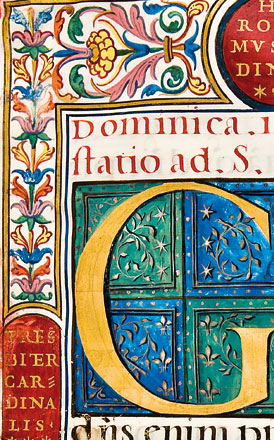 H
RO
MVS
DIN
Dominica. i
statio ad. S.
G
PRES
BITER
CAR
DINA
LIS
dn̄s enim pr